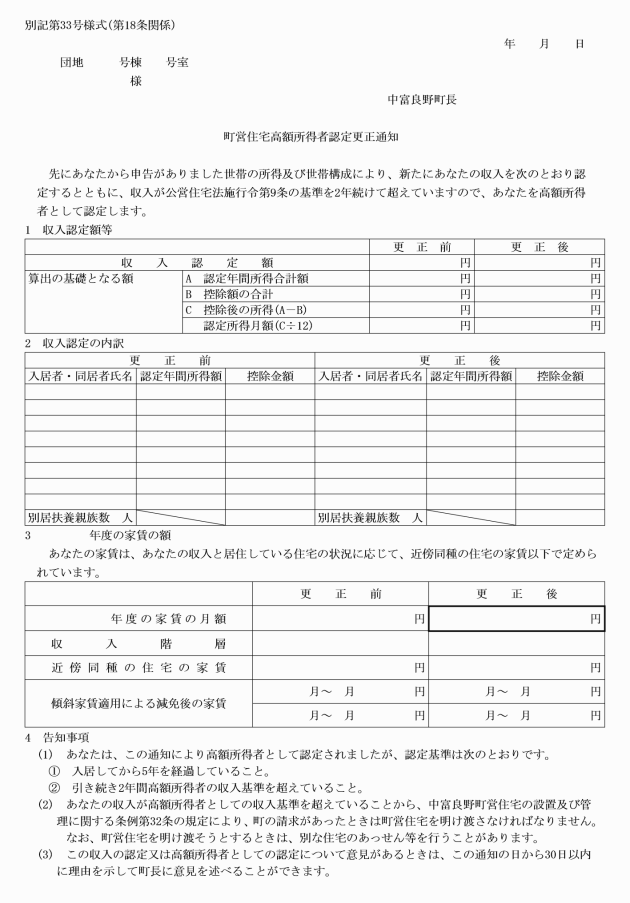 別記第33号様式(第18条関係)
年　月　日
団地　　号棟　　号室
様
中富良野町長
町営住宅高額所得者認定更正通知
先にあなたから申告がありました世帯の所得及び世帯構成により、新たにあなたの収入を次のとおり認
定するとともに、収入が公営住宅法施行令第9条の基準を2年続けて超えていますので、あなたを高額所得
者として認定します。
1　収入認定額等
更　正　前　更　正　後
収　入　認　定　額　円　円
算出の基礎となる額　A　認定年間所得合計額　円　円
B　控除額の合計　円　円
C　控除後の所得(A－B)　円　円
認定所得月額(C÷12)　円　円
2　収入認定の内訳
更　正　前　更　正　後
入居者・同居者氏名　認定年間所得額　控除金額　入居者・同居者氏名　認定年間所得額　控除金額
別居扶養親族数　人　別居扶養親族数　人
3　　　　年度の家賃の額
あなたの家賃は、あなたの収入と居住している住宅の状況に応じて、近傍同種の住宅の家賃以下で定めら
れています。
更　正　前　更　正　後
年度の家賃の月額　円　円
収　入　階　層
近傍同種の住宅の家賃　円　円
傾斜家賃適用による減免後の家賃　月～　月　円　月～　月　円
月～　月　円　月～　月　円
4　告知事項
(1)　あなたは、この通知により高額所得者として認定されましたが、認定基準は次のとおりです。
①　入居してから5年を経過していること。
②　引き続き2年間高額所得者の収入基準を超えていること。
(2)　あなたの収入が高額所得者としての収入基準を超えていることから、中富良野町営住宅の設置及び管
理に関する条例第32条の規定により、町の請求があったときは町営住宅を明け渡さなければなりません。
なお、町営住宅を明け渡そうとするときは、別な住宅のあっせん等を行うことがあります。
(3)　この収入の認定又は高額所得者としての認定について意見があるときは、この通知の日から30日以内
に理由を示して町長に意見を述べることができます。